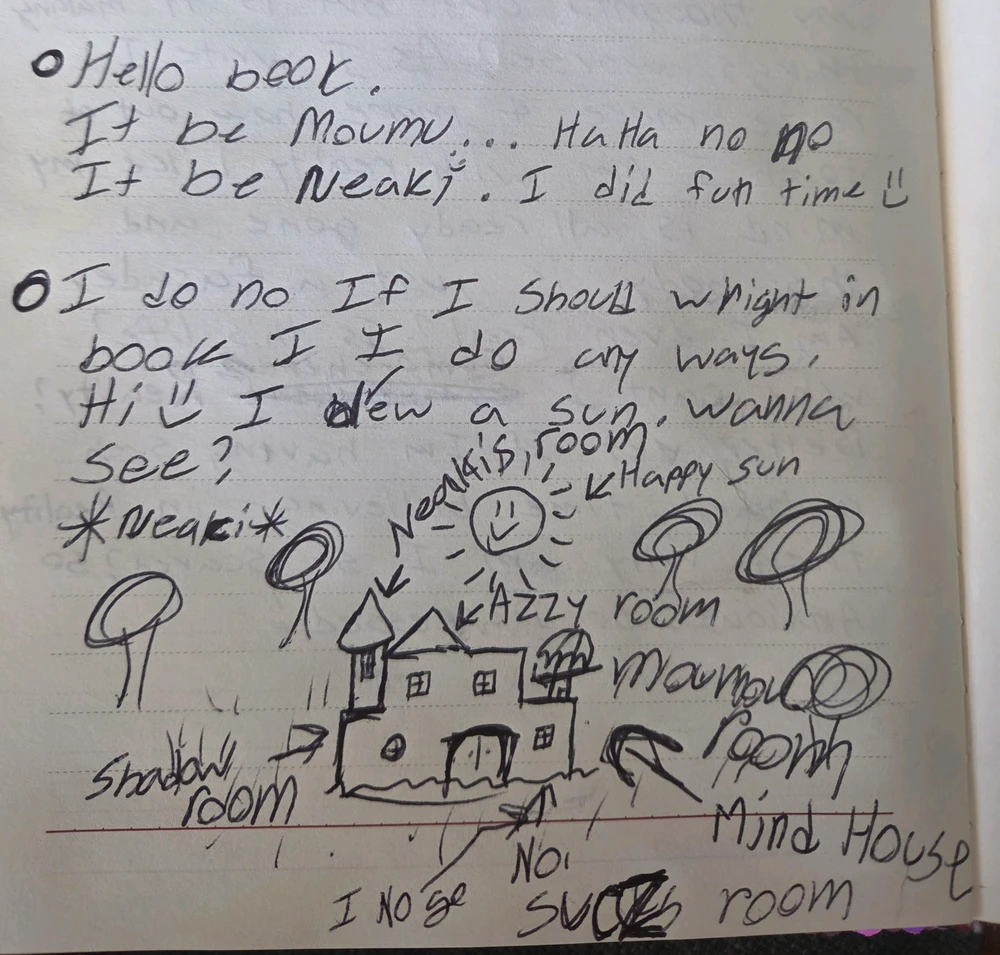 Hello book.
It be Moumu... HaHa no no
It be Neaki. I did fun time
I do no If I Should wright in
book I I do any ways.
Hi I drew a sun. wanna
See?
*Neaki*
Neakis room
Happy sun
Azzy room
Moumou
room
Shadow
room
Mind House
No.
I No go
room